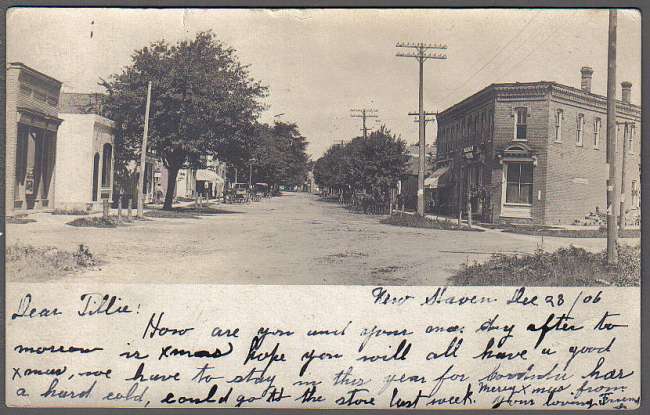 New Haven Dec 23/06
Dear Tillie!
How are you and your ones day after to
morrow is xmas hope you will all have a good
xmas, we have to stay in this year for has
a hard cold, could go to the store last week.
Merry xmas from
your loving Friend